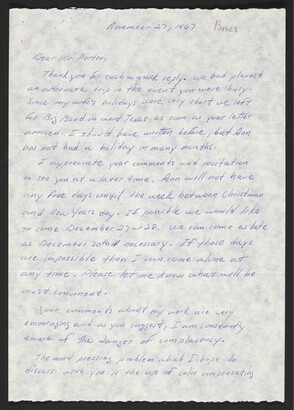 November 27, 1967
Dear Mr. Porter,
Thank you for such a quick reply. We had planned
an alternate trip in the event you were busy.
Since my wife's holidays were very short we left
for Big Bend in west Texas as soon as your letter
arrived. I should have written before, but Ann
has not had a holiday in many months.
I appreciate your comments and invitation
to see you at a later time. Ann will not have
any free days until the week between Christmas
and New Years day. If possible we would like
to come December 27 or 28. We can come as late
as December 30th if necessary. If those days
are impossible then I can come alone at
any time. Please let me know what will be
most convenient.
Your comments about my work are very
encouraging and as you suggest, I am constantly
aware of the danger of complacency.
The most pressing problem which I hope to
discuss with you is the use of color compensating